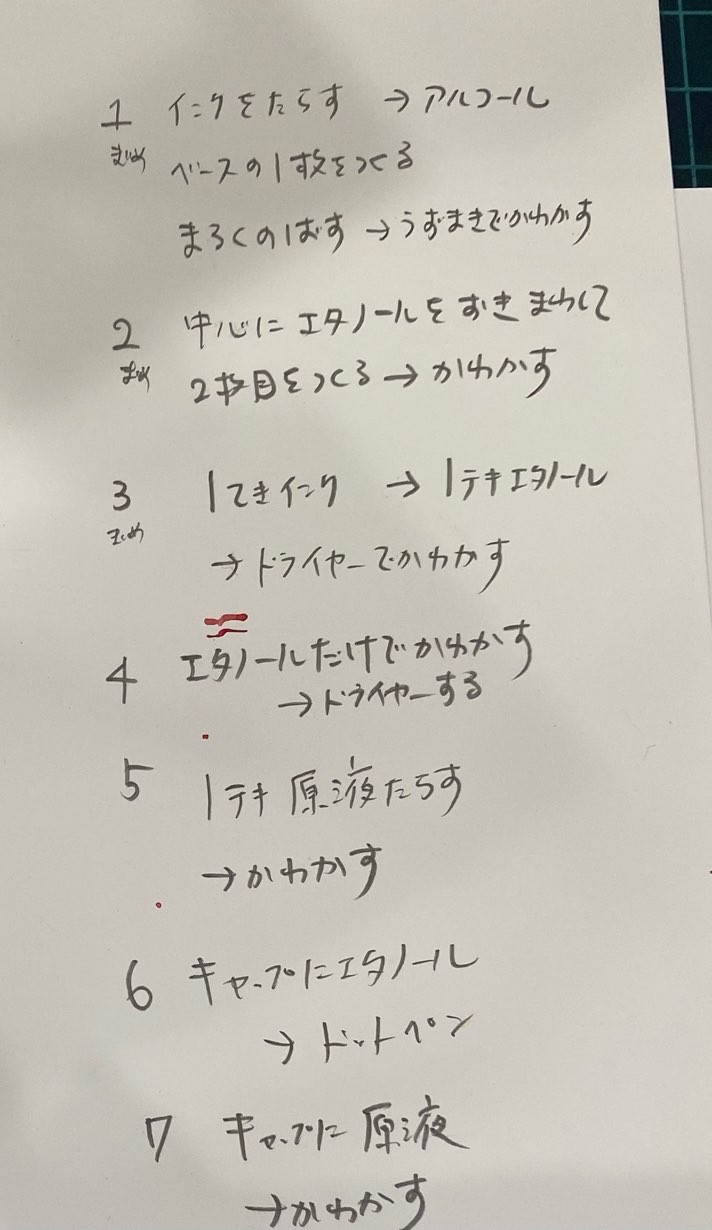 1 インクをたらす → アルコール
まとめ ベースの1枚をつくる
まろくのばす → うずまきでかわかす
2 中心にエタノールをおきまわして
まとめ 2枚目をつくる → かわかす
3 1てきインク → 1テキエタノール
まとめ → ドライヤーでかわかす
4 エタノールだけでかわかす
→ ドライヤーする
5 1テキ 原液たらす
→ かわかす
6 キャップにエタノール
→ ドットペン
7 キャップに原液
→ かわかす